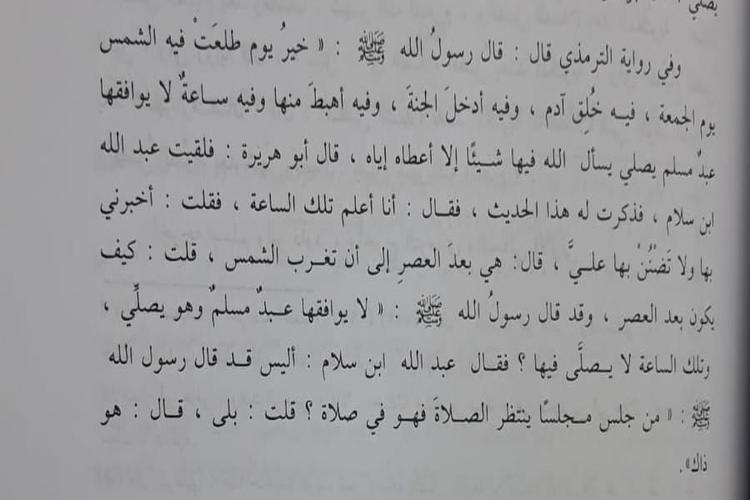 يصلي
وفي رواية الترمذي قال : قال رسولُ الله ﷺ : « خيرُ يوم طلعَتْ فيه الشمس
يوم الجمعة ، فيه خُلِق آدم ، وفيه أدخلَ الجنةَ ، وفيه أهبطَ منها وفيه ساعةٌ لا يوافقها
عبدٌ مسلم يصلي يسأل الله فيها شيئًا إلا أعطاه إياه ، قال أبو هريرة : فلقيت عبد الله
ابن سلام ، فذكرت له هذا الحديث ، فقال : أنا أعلم تلك الساعة ، فقلت : أخبرني
بها ولا تَضْنُنْ بها عليَّ ، قال: هي بعدَ العصرِ إلى أن تغرب الشمس ، قلت : كيف
يكون بعد العصر ، وقد قال رسولُ الله ﷺ : « لا يوافقها عبدٌ مسلمٌ وهو يصلِّي ،
وتلك الساعة لا يصلَّى فيها ؟ فقال عبد الله ابن سلام : أليس قد قال رسول الله
ﷺ : « من جلس مجلسًا ينتظر الصلاةَ فهو في صلاة ؟ قلت : بلى ، قال : هو
ذاك».